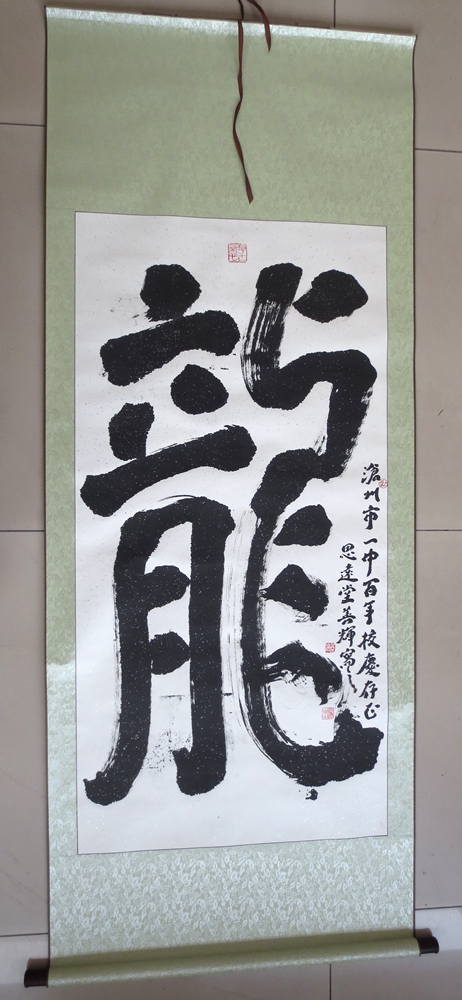 龍
滄州市一中百年校慶存正
思遠堂善輝寫之